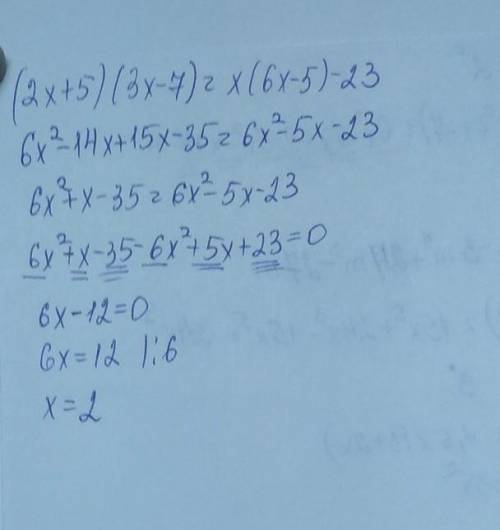 (2x+5)(3x-7)= x(6x-5)-23
6x²-14x+15x-35= 6x²-5x-23
6x²+x-35= 6x²-5x-23
6x²+x-35-6x²+5x+23=0
6x-12=0
6x=12 |:6
x=2